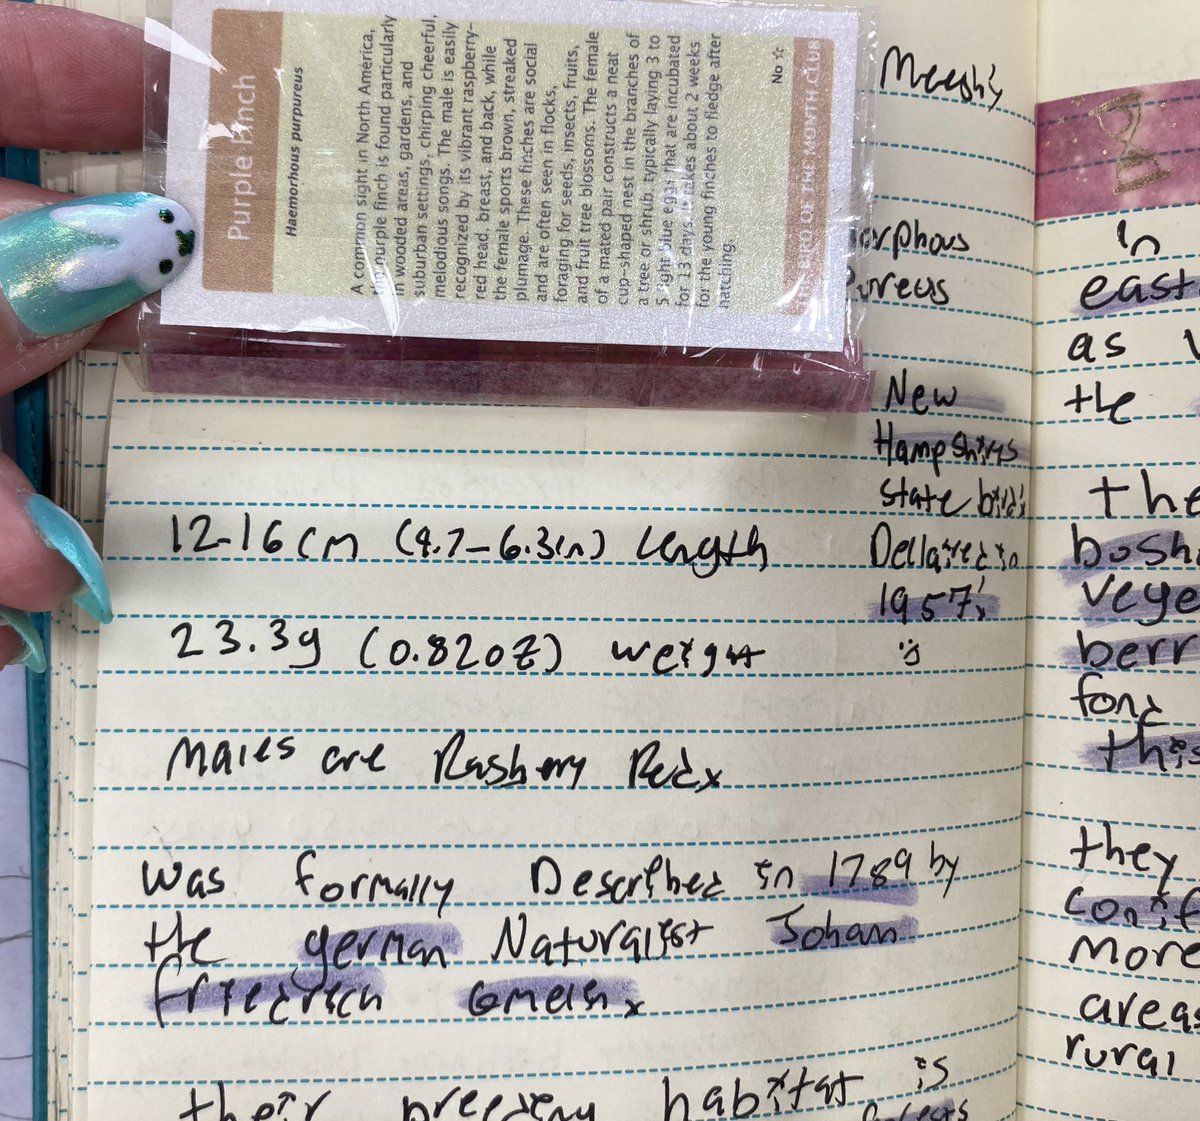 Purple Finch
Haemorhous purpureus
A common sight in North America,
the purple finch is found particularly
in wooded areas, gardens, and
suburban settings, chirping cheerful,
melodious songs. The male is easily
recognized by its vibrant raspberry-
red head, breast, and back, while
the female sports brown, streaked
plumage. These finches are social
and are often seen in flocks,
foraging for seeds, insects, fruits,
and fruit tree blossoms. The female
of a mated pair constructs a neat
cup-shaped nest in the branches of
a tree or shrub, typically laying 3 to
5 light blue eggs that are incubated
for 13 days. It takes about 2 weeks
for the young finches to fledge after
hatching.
No
BIRD OF THE MONTH CLUB
orphous
pureus
New
Hampshires
state bird
Declared in
1957
12-16cm (4.7-6.3in) length
23.3g (0.82oz) weight
Males are Rasberry Red
Was formally Described in 1789 by
the german Naturalist Johan
Friedrich Gmelin
their breeding habitat is
In
east
as
the
the
bosh
vege
berr
fond
this
they
conif
more
areas
rural